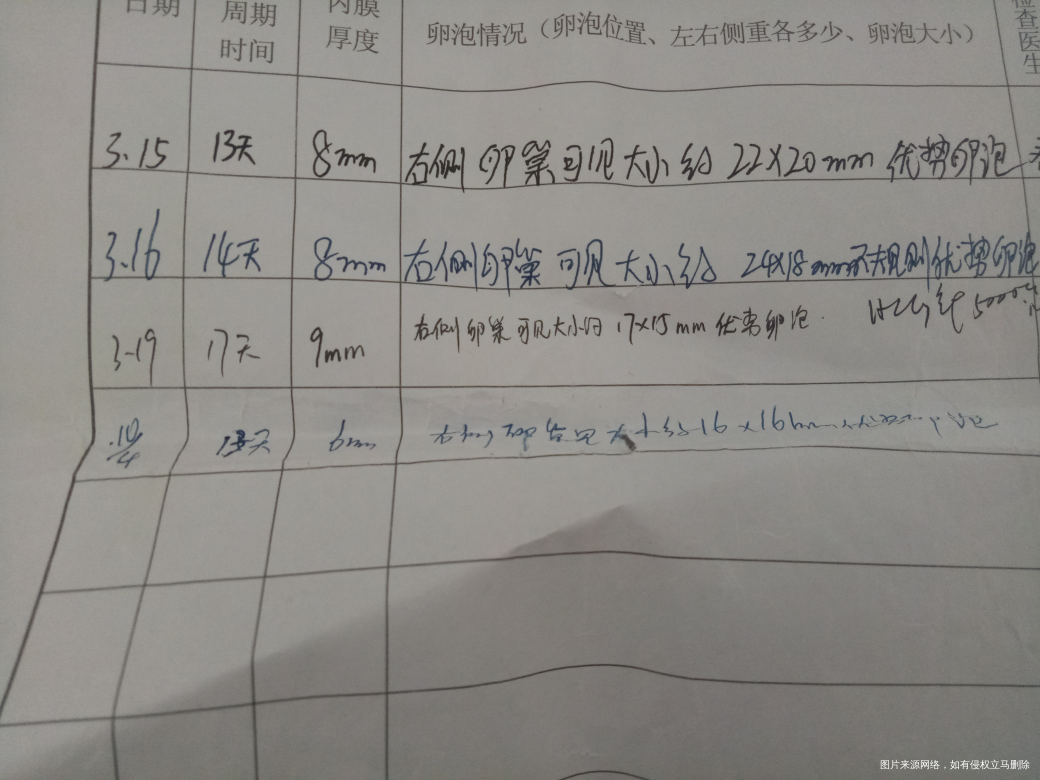 日期 周期时间 内膜厚度 卵泡情况（卵泡位置、左右侧重各多少、卵泡大小） 检查医生
3.15 13天 8mm 右侧卵巢可见大小约22X20mm优势卵泡
3.16 14天 8mm 右侧卵巢可见大小约24X18mm不规则优势卵泡
3-19 17天 9mm 右侧卵巢可见大小约17X15mm优势卵泡. HCG针5000
右侧卵巢见大小约16x16mm
图片来源网络，如有侵权立马删除